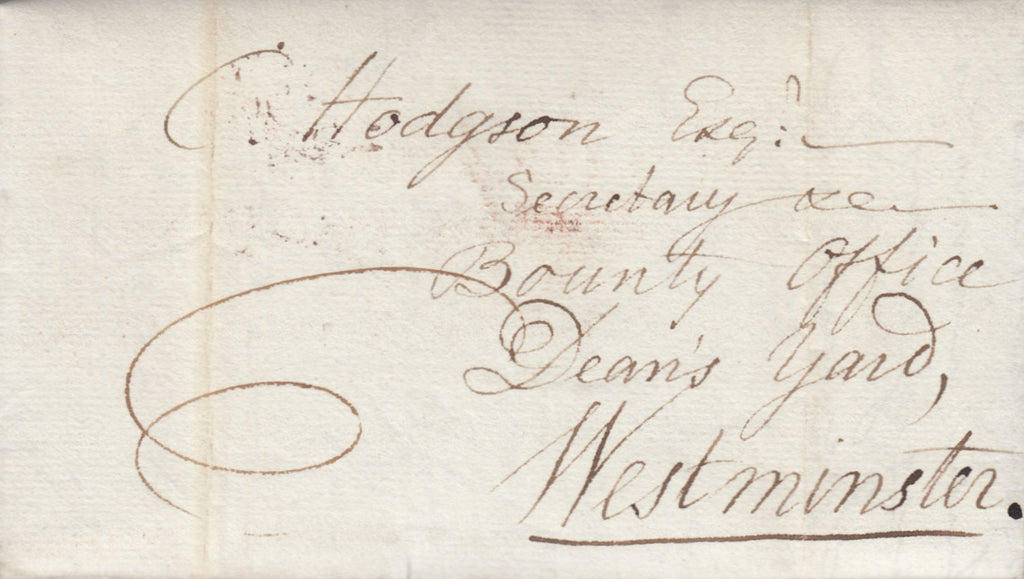 C Hodgson Esqr:
Secretary &c
Bounty Office
Dean's Yard,
Westminster.